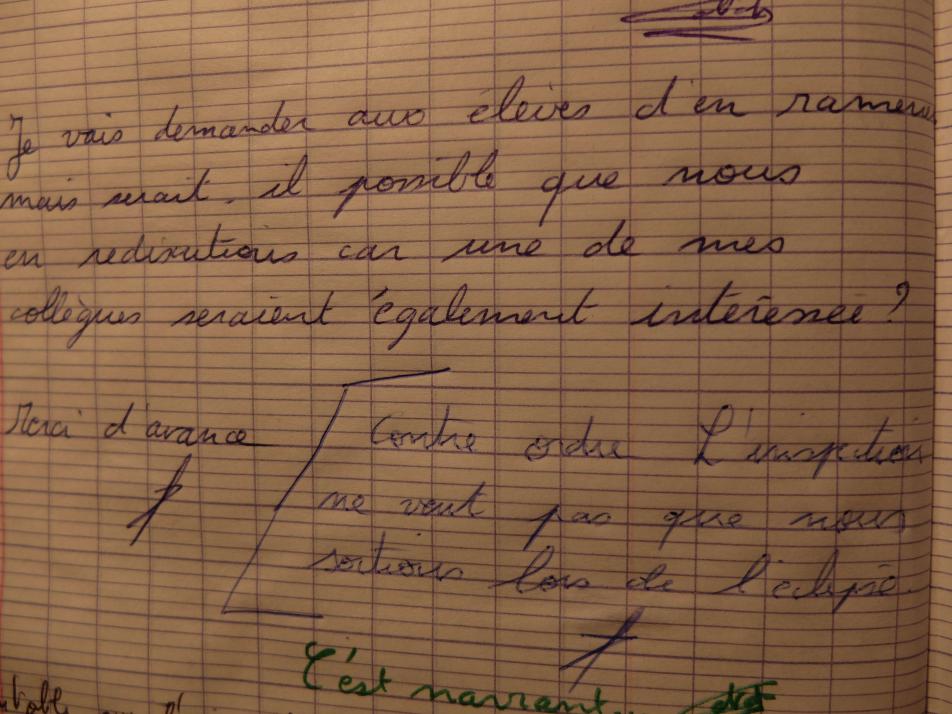 Je vais demander aux élèves d'en ramener
mais serait-il possible que nous
en rediscutions car une de mes
collègues seraient également intéressée ?
Merci d'avance
Contre ordre L'inspection
ne veut pas que nous
sortions lors de l'éclipse.
C'est navrant.